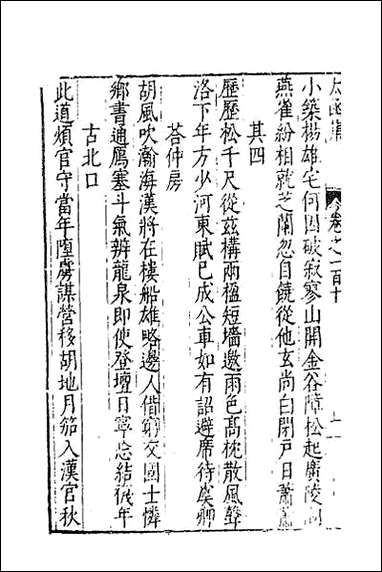 太函集 卷之一百十
小築楊雄宅何因破寂寥山開金谷障松起廣陵
燕雀紛相就芝蘭忽自饒從他玄尚白閉戶日蕭蕭
其四
歷歷松千尺從玆構兩楹短墻邀雨色高枕散風聲
洛下年方少河東賦已成公車如有詔避席待虞卿
荅仲房
胡風吹瀚海漢將在樓船雄略邊人借窮交國士憐
鄉書通鴈塞斗氣辨龍泉即使登壇日寧忘結襪年
古北口
此道煩官守當年墮虜謀營移胡地月笳入漢宮秋